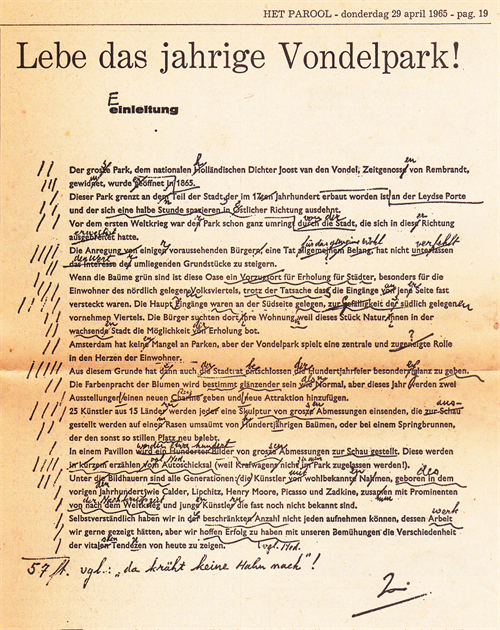 HET PAROOL - donderdag 29 april 1965 - pag. 19
Lebe das jahrige Vondelpark!
E
einleitung
Der grosse Park, dem nationalen Holländischen Dichter Joost van den Vondel, Zeitgenosse von Rembrandt,
gewidmet, wurde geöffnet in 1865.
Dieser Park grenzt an dem Teil der Stadt der im 17en Jahrhundert erbaut worden ist an der Leydse Porte
und der sich eine halbe Stunde spazieren in Östlicher Richtung ausdehnt.
von der
Vor dem ersten Weltkrieg war der Park schon ganz umringt durch die Stadt, die sich in diese Richtung
ausgebreitet hatte.
für das gemeine Wohl verfehlt
Die Anregung von einigen voraussehenden Bürgern, eine Tat allgemeinem Belang, hat nicht unterlassen
derzeit
das Interesse der umliegenden Grundstücke zu steigern.
Wenn die Baüme grün sind ist diese Oase ein Vorzugsort für Erholung für Städter, besonders für die
Einwohner des nördlich gelegen Volksviertels, trotz der Tatsache dass die Eingänge an jene Seite fast
versteckt waren. Die Haupt Eingänge waren an der Südseite gelegen, zur Gefälligkeit der südlich gelegenen
vornehmen Viertels. Die Bürger suchten dort ihre Wohnung weil dieses Stück Natur innen in der
wachsende Stadt die Möglichkeit von Erholung bot.
Amsterdam hat keine Mangel an Parken, aber der Vondelpark spielt eine zentrale und zugeneigte Rolle
in den Herzen der Einwohner.
Aus diesem Grunde hat dann auch die Stadtrat entschlossen die Hundertjahrfeier besonder glanz zu geben.
als
Die Farbenpracht der Blumen wird bestimmt glänzender sein wie Normal, aber dieses Jahr werden zwei
Ausstellungen einen neuen Charme geben und neue Attraktion hinzufügen.
aus-
25 Künstler aus 15 Länder werden jeder eine Skulptur von grosse Abmessungen einsenden, die zur Schau
gestellt werden auf einer Rasen umsäumt von Hundertjährigen Baümen, oder bei einem Springbrunnen,
der den sonst so stillen Platz neu belebt.
werden etwa hundert
In einem Pavillon wird ein Hunderter Bilder von grosse Abmessungen zur Schau gestellt. Diese werden
in kurzem erzählen vom Autoschicksal (weil Kraftwagen nicht im Park zugelassen werden!).
des
Unter die Bildhauern sind alle Generationen: die Künstler von wohlbekannte Nahmen, geboren in dem
vorigen Jahrhundert wie Calder, Lipchitz, Henry Moore, Picasso und Zadkine, zusamen mit Prominenten
von nach dem Weltkrieg und junge Künstler die fast noch nicht bekannt sind.
werke
Selbstverständlich haben wir in der beschränkten Anzahl nicht jeden aufnehmen können, dessen Arbeit
wir gerne gezeigt hätten, aber wir hoffen Erfolg zu haben mit unseren Bemühungen die Verschiedenheit
der vitalen Tendezen von heute zu zeigen.
57 ft. vgl.: „da kräht keine Hahn nach"!